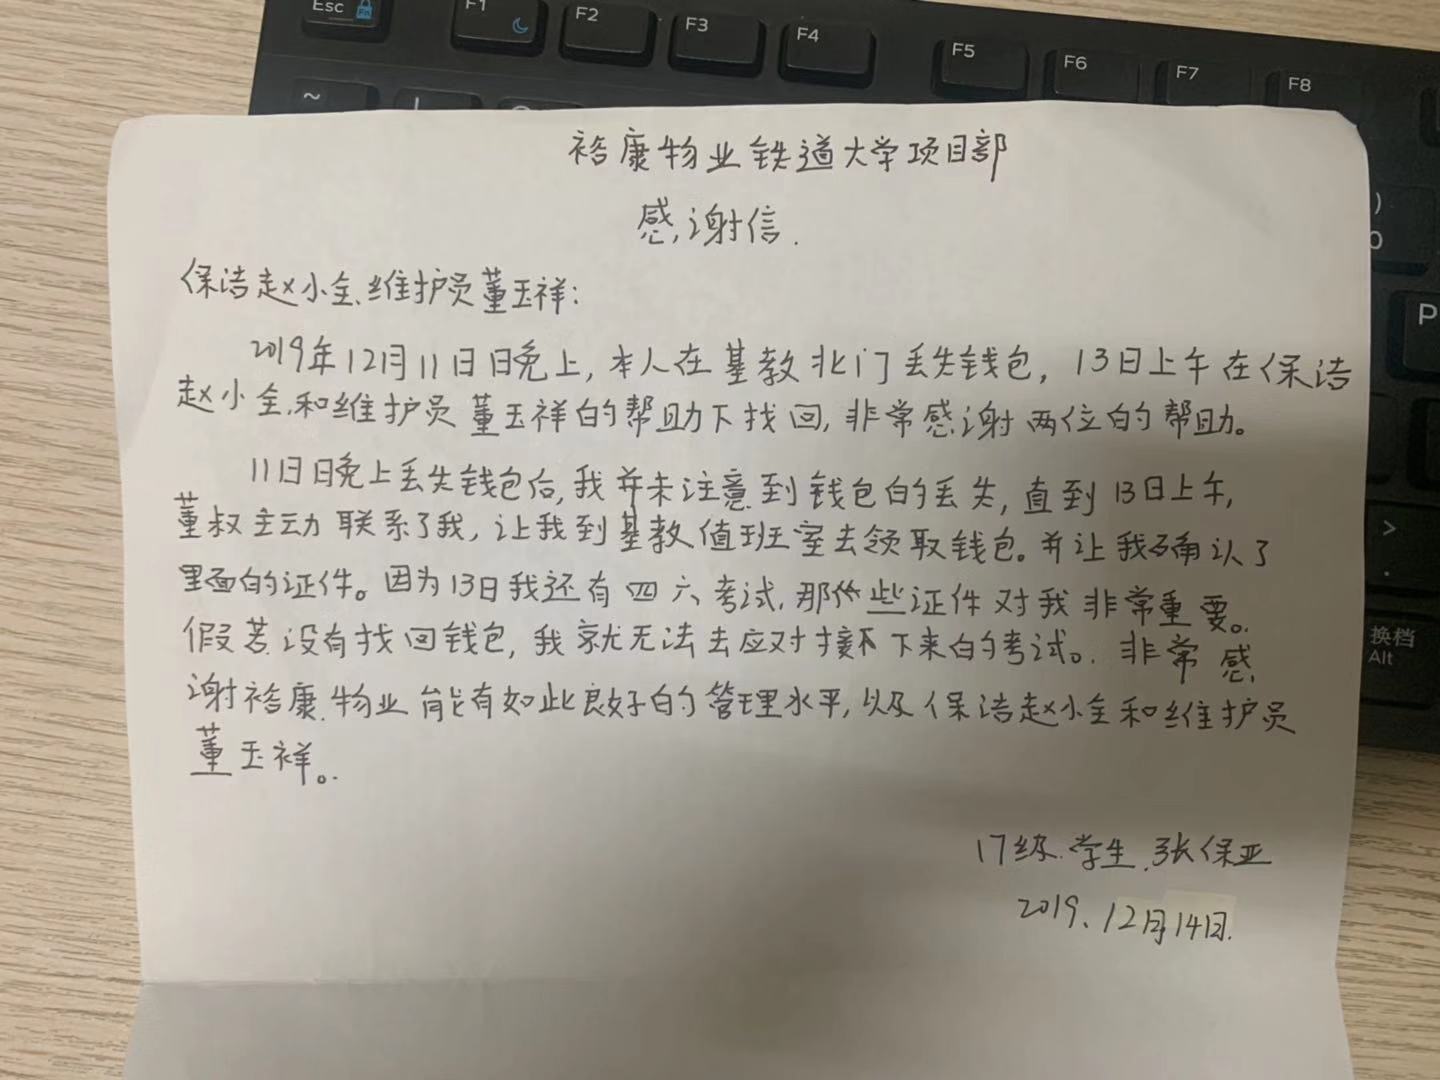 Esc Fn F1 F2 F3 F4 F5 F6 F7 F8
~ !
裕康物业铁道大学项目部
感谢信.
) 0
保洁赵小全、维护员董玉祥：
P
2019年12月11日晚上，本人在基教北门丢失钱包，13日上午在保洁
赵小全、和维护员董玉祥的帮助下找回，非常感谢两位的帮助。
11日晚上丢失钱包后，我并未注意到钱包的丢失，直到13日上午，
董叔主动联系了我，让我到基教值班室去领取钱包。并让我确认了
> .
里面的证件。因为13日我还有四六考试，那些证件对我非常重要。
假若没有找回钱包，我就无法去应对接下来的考试。非常感
换档
Alt
谢裕康物业能有如此良好的管理水平，以及保洁赵小全和维护员
董玉祥。
17级学生张保亚
2019、12月14日.